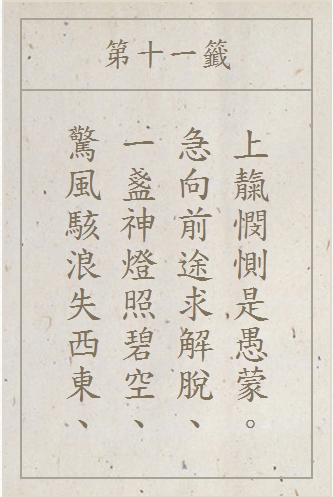 第十一籤
驚風駭浪失西東、
一盞神燈照碧空、
急向前途求解脫、
上靝憫惻是愚蒙。